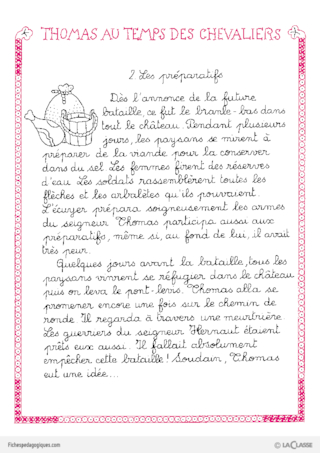 THOMAS AU TEMPS DES CHEVALIERS
2. Les préparatifs
Dès l'annonce de la future
bataille, ce fut le branle-bas dans
tout le château. Pendant plusieurs
jours, les paysans se mirent à
préparer de la viande pour la conserver
dans du sel. Les femmes firent des réserves
d'eau. Les soldats rassemblèrent toutes les
flèches et les arbalètes qu'ils pouvaient.
L'écuyer prépara soigneusement les armes
du seigneur. Thomas participa aussi aux
préparatifs, même si, au fond de lui, il avait
très peur.
Quelques jours avant la bataille, tous les
paysans vinrent se réfugier dans le château
puis on leva le pont-levis. Thomas alla se
promener encore une fois sur le chemin de
ronde. Il regarda à travers une meurtrière.
Les guerriers du seigneur Hernaut étaient
prêts eux aussi. Il fallait absolument
empêcher cette bataille ! Soudain, Thomas
eut une idée...
Fichespedagogiques.com
© LA CLASSE